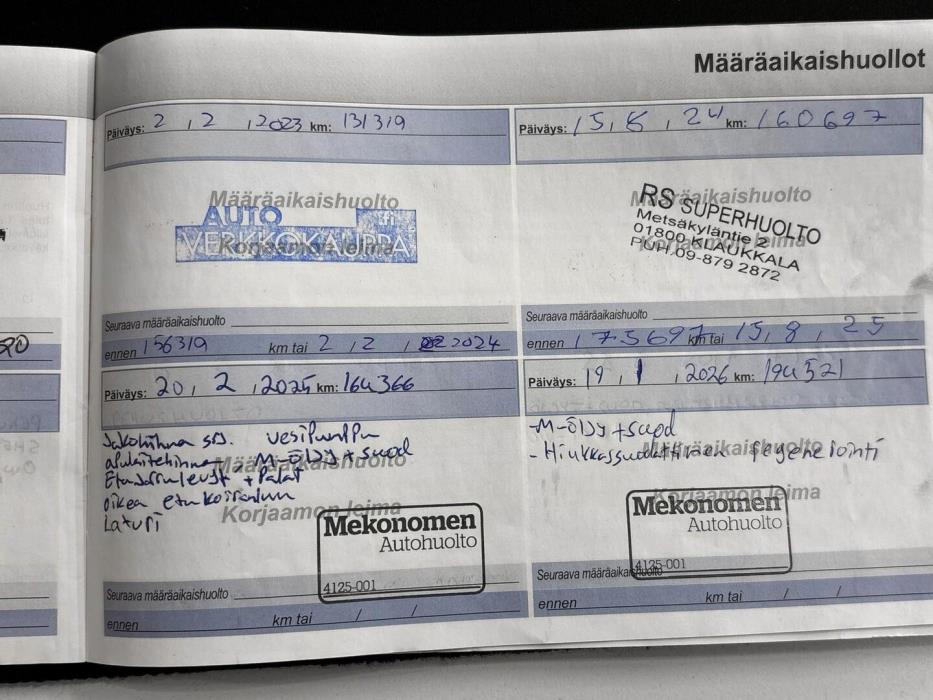 Määräaikaishuollot
Päiväys: 2 , 2 , 2023 km: 131319
Määräaikaishuolto
AUTO .fi
VERKKOKAUPPA
Korjaamon leima
Seuraava määräaikaishuolto
ennen 156319 km tai 2 , 2 , 2024
Päiväys: 15, 8 , 24 km: 160697
Määräaikaishuolto
RS SUPERHUOLTO
Metsäkyläntie 2
01800 KLAUKKALA
PUH.09-879 2872
Korjaamon leima
Seuraava määräaikaishuolto
ennen 175697 km tai 15, 8 , 25
20
Päiväys: 20, 2 , 2025 km: 164366
Jakohihna srj. vesipumppu
apulaitehihna M-öljy + suod
Etujarrulevyt + Palat
oikea etu
Laturi
Määräaikaishuolto
Korjaamon leima
Mekonomen
Autohuolto
4125-001
Seuraava määräaikaishuolto
ennen km tai / /
Päiväys: 19 , 1 , 2026 km: 194521
-M-öljy + suod
- Hiukkassuodattimen regenerointi
Määräaikaishuolto
Korjaamon leima
Mekonomen
Autohuolto
4125-001
Seuraava määräaikaishuolto
ennen km tai / /